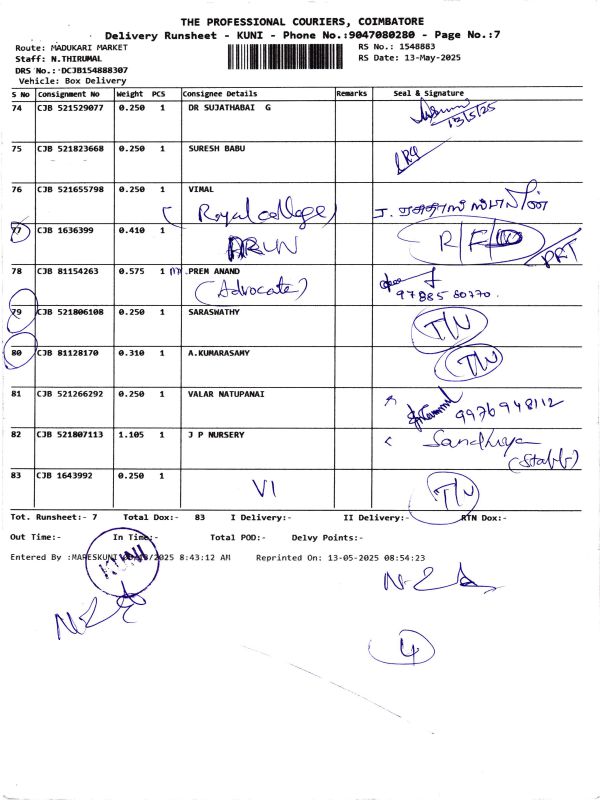 THE PROFESSIONAL COURIERS, COIMBATORE
Delivery Runsheet - KUNI - Phone No.:9047080280 - Page No.:7
Route: MADUKARI MARKET RS No.: 1548883
Staff: N.THIRUMAL RS Date: 13-May-2025
DRS No.: DCJB154888307
Vehicle: Box Delivery
S No Consignment No Weight PCS Consignee Details Remarks Seal & Signature
74 CJB 521529077 0.250 1 DR SUJATHABAI G
13/5/25
75 CJB 521823668 0.250 1 SURESH BABU
76 CJB 521655798 0.250 1 VIMAL
(Royal college)
77 CJB 1636399 0.410 1 ARUN R/F/
PRT
78 CJB 81154263 0.575 1 M.PREM ANAND
(Advocate) 97885 80770.
79 CJB 521806108 0.250 1 SARASWATHY T/N
80 CJB 81128170 0.310 1 A.KUMARASAMY T/N
81 CJB 521266292 0.250 1 VALAR NATUPANAI
9976948112
82 CJB 521807113 1.105 1 J P NURSERY Sandhiya
(Staff)
83 CJB 1643992 0.250 1 VI T/N
Tot. Runsheet:- 7 Total Dox:- 83 I Delivery:- II Delivery:- RTN Dox:-
Out Time:- In Time:- Total POD:- Delvy Points:-
Entered By :MARESKUNI 2025 8:43:12 AM Reprinted On: 13-05-2025 08:54:23
KUNI
4